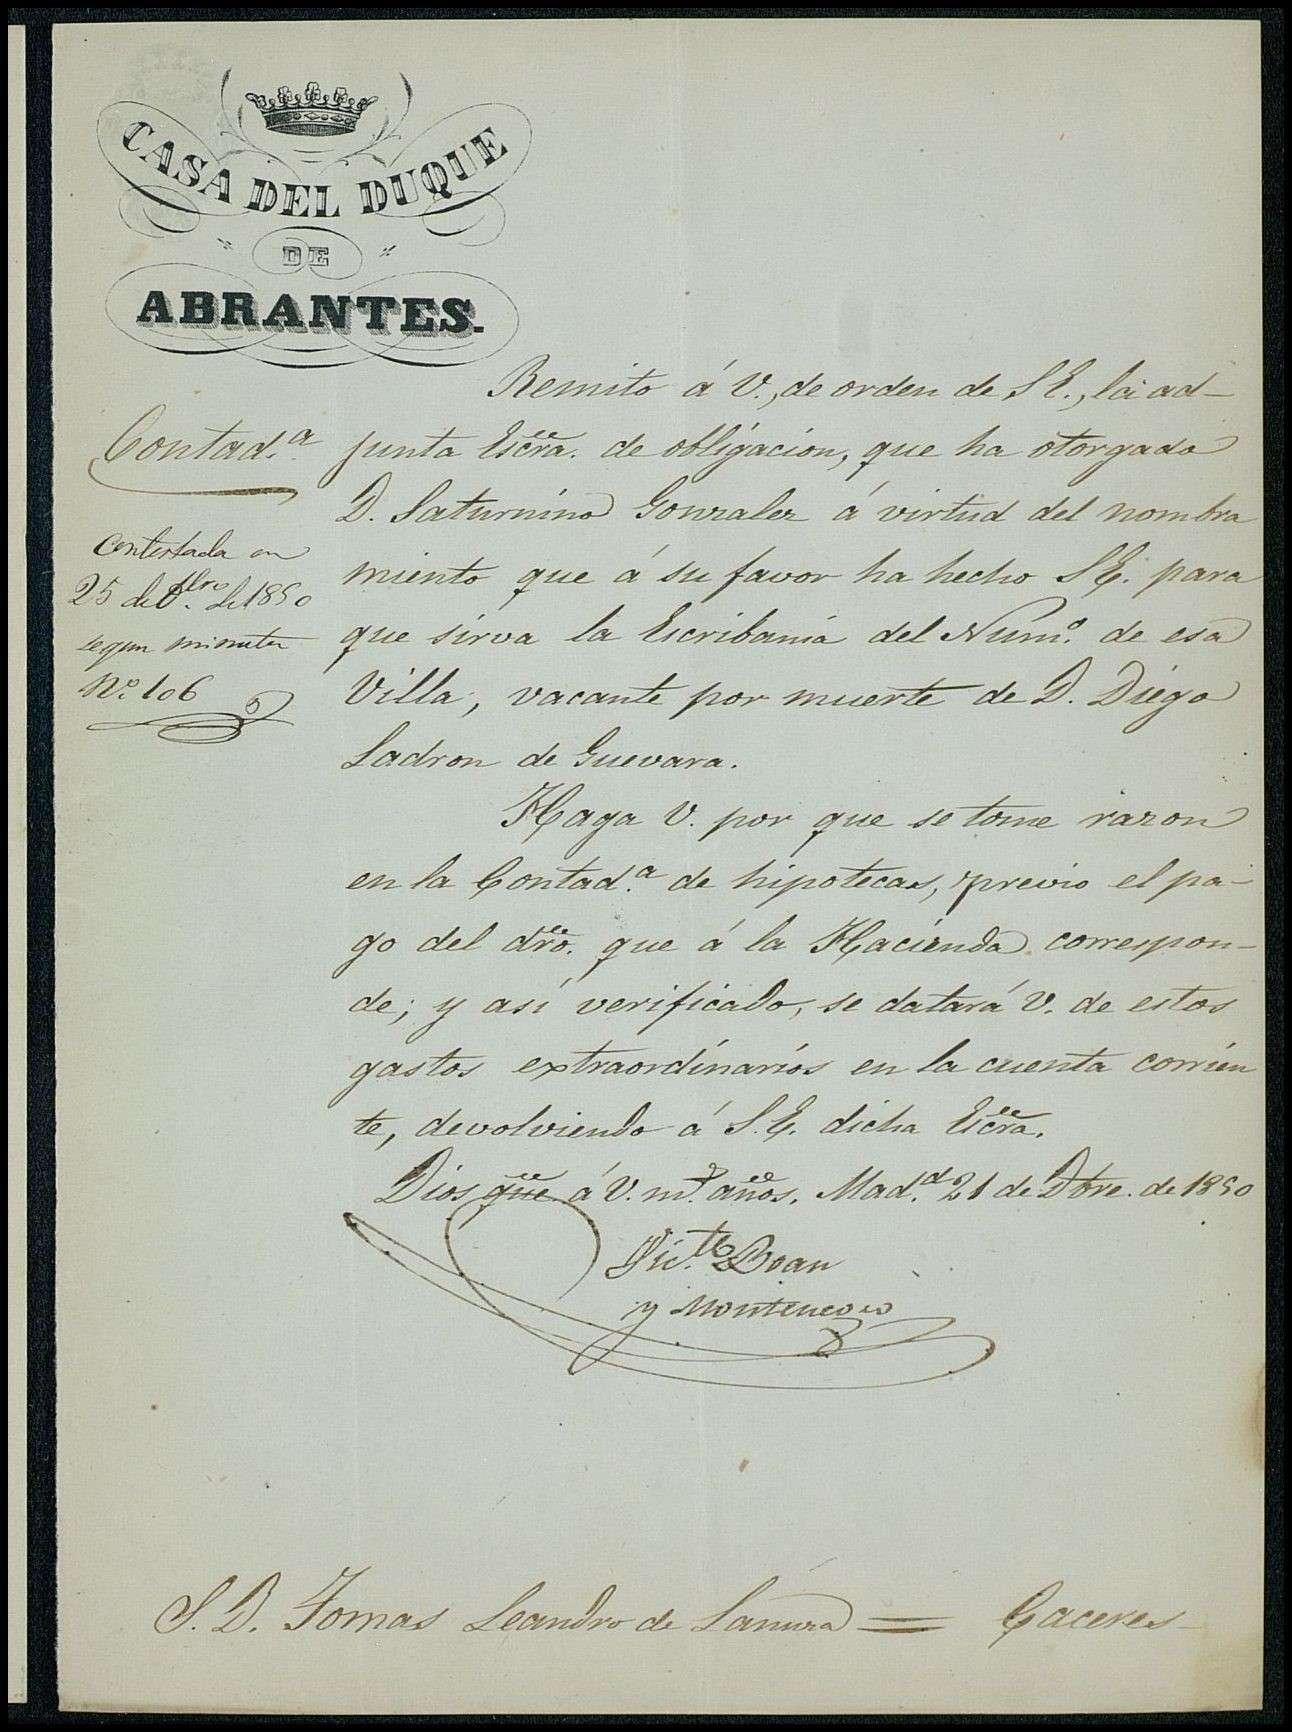 CASA DEL DUQUE
DE
ABRANTES.
Contad.ª
Contestada en
25 de Dbre. de 1850
segun minuta
N.º 106
Remito á V., de orden de S E., la ad-
junta Escra. de obligacion, que ha otorgado
D. Saturnino Gonzalez á virtud del nombra
miento que á su favor ha hecho S E. para
que sirva la Escribanía del Núm.º de esa
Villa, vacante por muerte de D. Diego
Ladron de Guevara.
Haga V. por que se tome razon
en la Contad.ª de hipotecas, previo el pa-
go del dro. que á la Hacienda correspon-
de; y así verificado, se datará V. de estos
gastos extraordinarios en la cuenta corrien
te, devolviendo á S.E. dicha Escra.
Dios gue á V. m.s años. Mad.d 21 de Dbre. de 1850
Vic.te
y Montenegro
S. D. Tomas Leandro de = Caceres